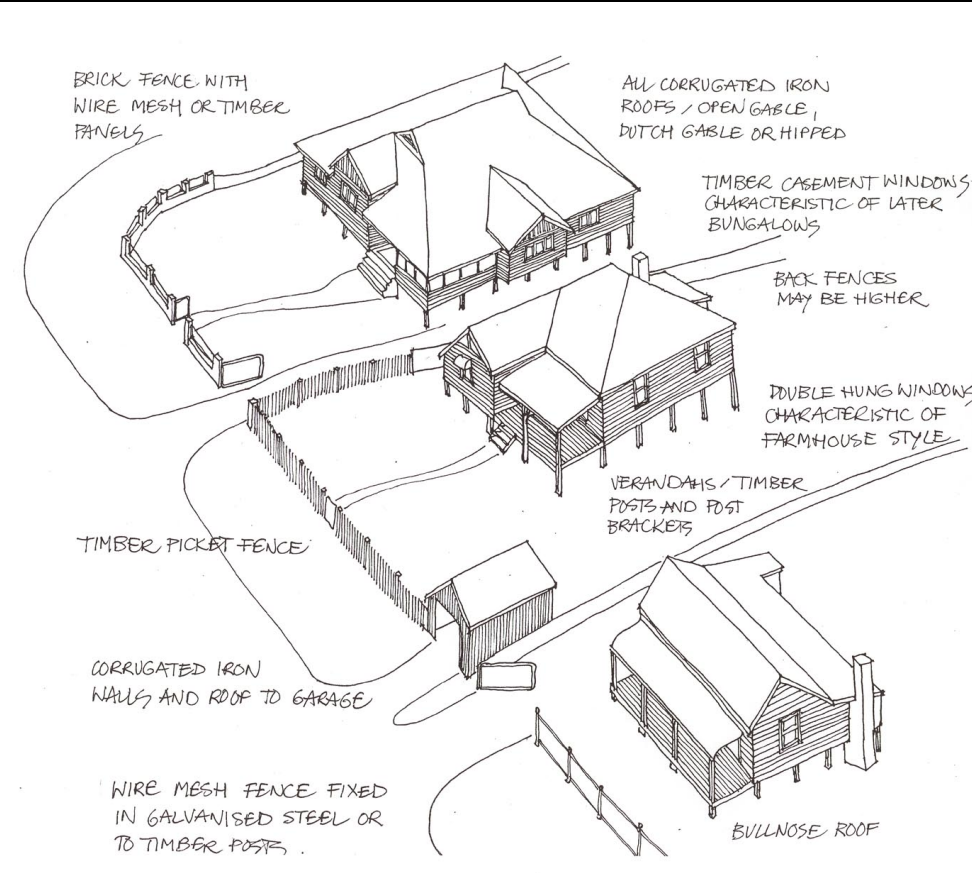 BRICK FENCE WITH
WIRE MESH OR TIMBER
PANELS
ALL CORRUGATED IRON
ROOFS / OPEN GABLE,
DUTCH GABLE OR HIPPED
TIMBER CASEMENT WINDOWS
CHARACTERISTIC OF LATER
BUNGALOWS
BACK FENCES
MAY BE HIGHER
DOUBLE HUNG WINDOWS
CHARACTERISTIC OF
FARMHOUSE STYLE
VERANDAHS / TIMBER
POSTS AND POST
BRACKETS
TIMBER PICKET FENCE
CORRUGATED IRON
WALLS AND ROOF TO GARAGE
WIRE MESH FENCE FIXED
IN GALVANISED STEEL OR
TO TIMBER POSTS.
BULLNOSE ROOF